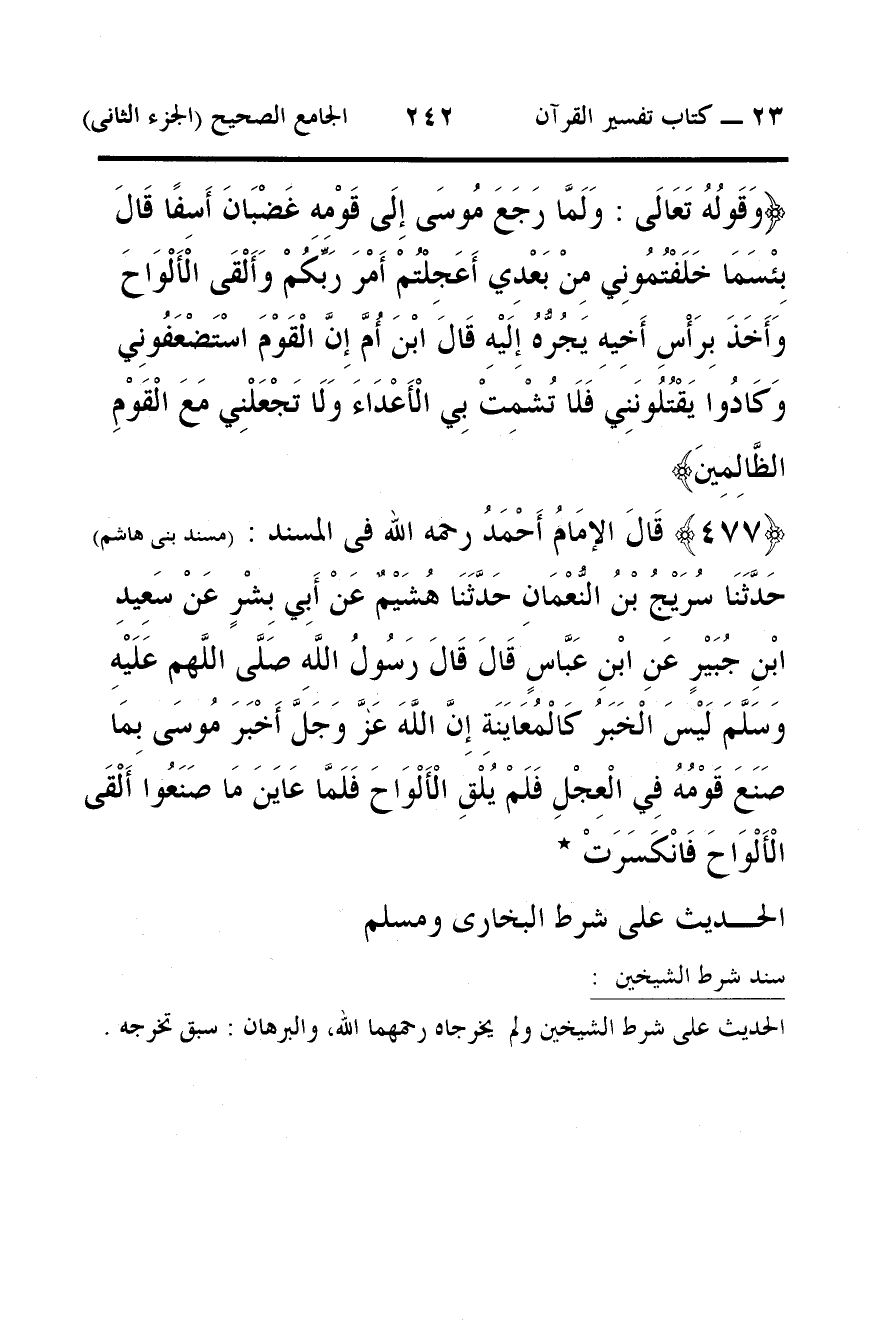 ٢٣ ــ كتاب تفسير القرآن ٢٤٢ الجامع الصحيح (الجزء الثانى)
﴿وَقَوْلُهُ تَعَالَى : وَلَمَّا رَجَعَ مُوسَى إِلَى قَوْمِهِ غَضْبَانَ أَسِفًا قَالَ
بِئْسَمَا خَلَفْتُمُونِي مِنْ بَعْدِي أَعَجِلْتُمْ أَمْرَ رَبِّكُمْ وَأَلْقَى الْأَلْوَاحَ
وَأَخَذَ بِرَأْسِ أَخِيهِ يَجُرُّهُ إِلَيْهِ قَالَ ابْنَ أُمَّ إِنَّ الْقَوْمَ اسْتَضْعَفُونِي
وَكَادُوا يَقْتُلُونَنِي فَلَا تُشْمِتْ بِي الْأَعْدَاءَ وَلَا تَجْعَلْنِي مَعَ الْقَوْمِ
الظَّالِمِينَ﴾
﴿٤٧٧﴾ قَالَ الإِمَامُ أَحْمَدُ رحمه الله فى المسند : (مسند بنى هاشم)
حَدَّثَنَا سُرَيْجُ بْنُ النُّعْمَانِ حَدَّثَنَا هُشَيْمٌ عَنْ أَبِي بِشْرٍ عَنْ سَعِيدِ
ابْنِ جُبَيْرٍ عَنِ ابْنِ عَبَّاسٍ قَالَ قَالَ رَسُولُ اللَّهِ صَلَّى اللَّهم عَلَيْهِ
وَسَلَّمَ لَيْسَ الْخَبَرُ كَالْمُعَايَنَةِ إِنَّ اللَّهَ عَزَّ وَجَلَّ أَخْبَرَ مُوسَى بِمَا
صَنَعَ قَوْمُهُ فِي الْعِجْلِ فَلَمْ يُلْقِ الْأَلْوَاحَ فَلَمَّا عَايَنَ مَا صَنَعُوا أَلْقَى
الْأَلْوَاحَ فَانْكَسَرَتْ *
الحـــديث على شرط البخارى ومسلم
سند شرط الشيخين :
الحديث على شرط الشيخين ولم يخرجاه رحمهما الله، والبرهان : سبق تخرجه .